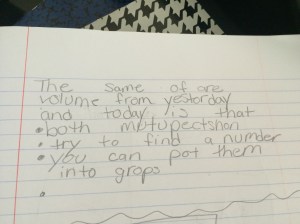 The same of are
volume from yestorday
and today is that
• both mutupectshon
• try to find a numder
• you can pot them
into grops
•